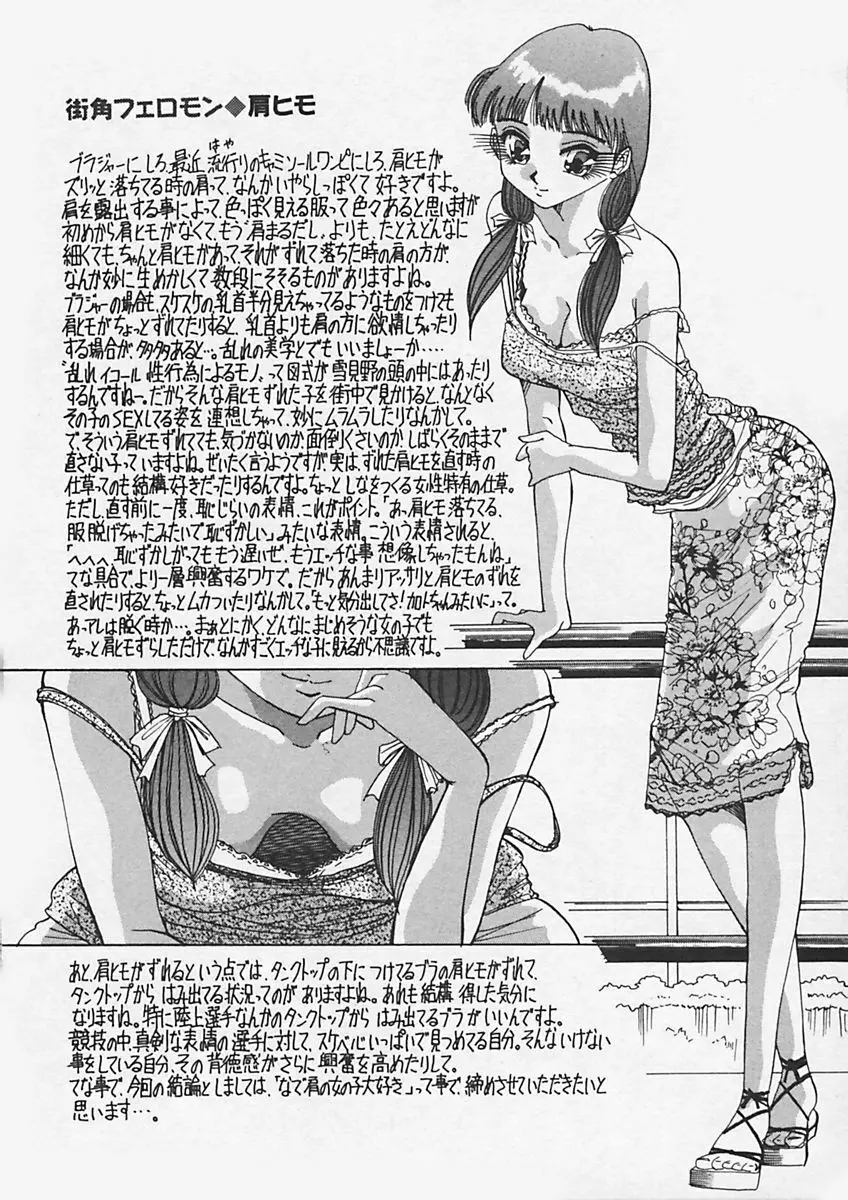 街角フェロモン◆肩ヒモ
ブラジャーにしろ、最近流行りのキャミソールワンピにしろ、肩ヒモが
はや
ズリッと落ちてる時の肩って、なんかいやらしっぽくて好きですよ。
肩を露出する事によって、色っぽく見える服って色々あると思いますが
初めから肩ヒモがなくて、もう“肩まるだし”よりも、たとえどんなに
細くても、ちゃんと肩ヒモがあって、それがずれて落ちた時の肩の方が、
なんか妙に生めかしくて数段にそそるものがありますよね。
ブラジャーの場合も、スケスケの、乳首半分見えちゃってるようなものをつけても
肩ヒモがちょっとずれてたりすると、乳首よりも肩の方に欲情しちゃったり
する場合が、タタタタあると…。乱れの美学とでもいいましょーか……
“乱れイコール性行為によるモノ”って図式が雪見野の頭の中にはあったり
するんですねー。だからそんな肩ヒモずれた子を街中で見かけると、なんとなく
その子のSEXしてる姿を連想しちゃって、妙にムラムラしたりなんかして。
で、そういう肩ヒモずれてても、気づかないのか、面倒くさいのか、しばらくそのままで
直さない子っていますよね。ぜいたく言うようですが実は、ずれた肩ヒモを直す時の
仕草ってのも結構好きだったりするんですよ。ちょっとしなをつくる女性特有の仕草。
ただし、直す前に一度、恥じらいの表情、これがポイント。「あっ、肩ヒモ落ちてる、
服脱げちゃったみたいで恥ずかしい」みたいな表情。こういう表情されると、
「へへへ、恥ずかしがってももう遅いぜ、もうエッチな事想像しちゃったもんね」
てな具合で、より一層興奮するワケで。だからあんまりアッサリと肩ヒモのずれを
直されたりすると、ちょっとムカついたりなんかして。“もっと気分出してさ!加トちゃんみたいに”って。
あーアレは脱ぐ時か…。まぁとにかくどんなにまじめそうな女の子でも
ちょっと肩ヒモずらしただけで、なんかすごくエッチな子に見えるから不思議ですよ。
あと、肩ヒモがずれるという点では、タンクトップの下につけてるブラの肩ヒモがずれて、
タンクトップからはみ出てる状況ってのがありますよね。あれも結構得した気分に
なりますね。特に陸上選手なんかのタンクトップからはみ出てるブラがいいんですよ。
競技の中、真剣な表情の選手に対して、スケベ心いっぱいで見つめてる自分。そんないけない
事をしている自分、その背徳感がさらに興奮を高めたりして。
てな事で、今回の結論としましては、「なで肩の女の子大好き」って事で、締めさせていただきたいと
思います…。